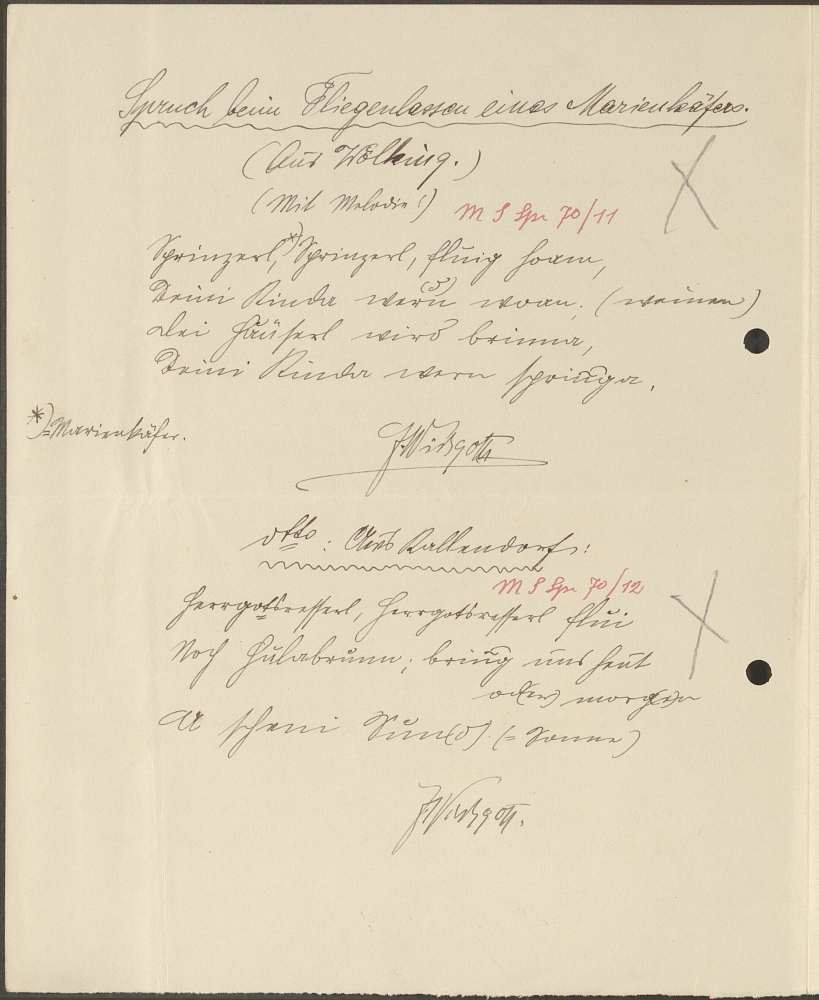 Spruch beim Fliegenlassen eines Marienkäfers.
(Aus Wölking.)
(Mit Melodie!)
M S Spr 70/11
Sprinzerl,*) Sprinzerl, fluig hoam,
Deini Kinda wern(d) woan; (weinen)
Dei Häuserl wird brinna,
Deini Kinda wern springa.
*)=Marienkäfer.
dtto: Aus Kallendorf:
M S Spr 70/12
Herrgotsresserl, Herrgotsresserl flui
Noch Hulabrunn; bring uns heut
od(er) morg(e)n
A scheni Sun(d) (= Sonne)